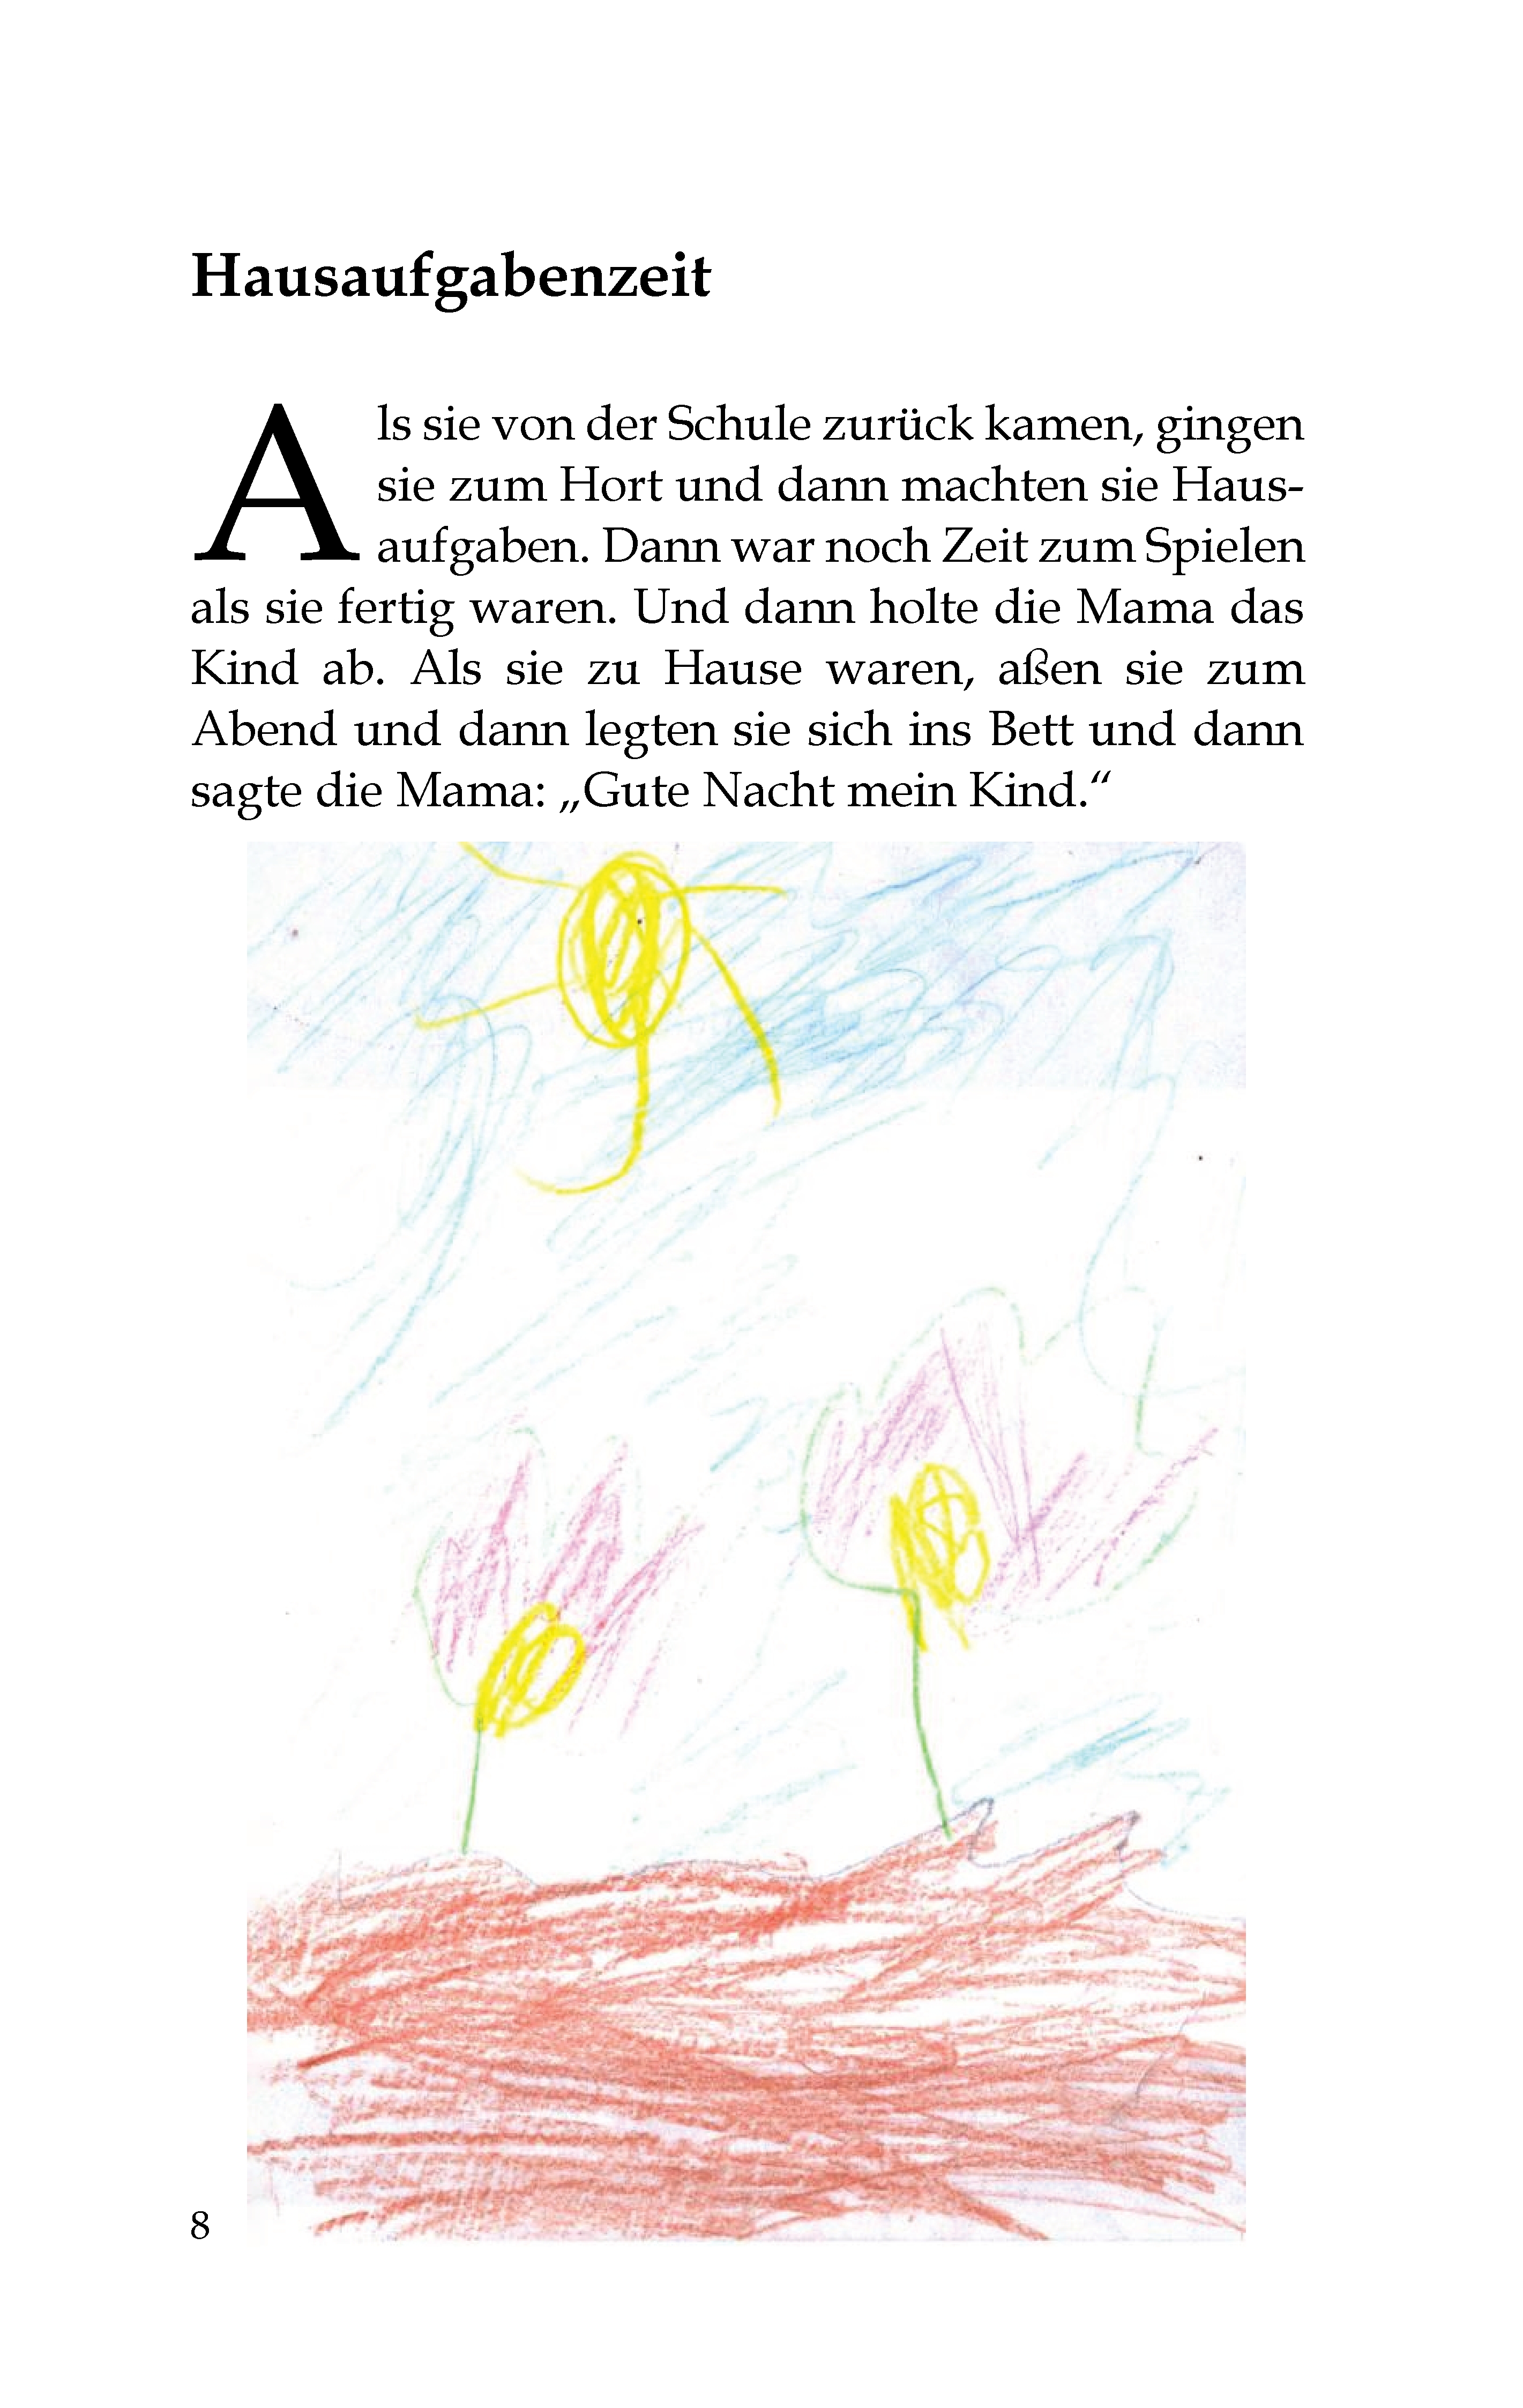 Hausaufgabenzeit
Als sie von der Schule zurück kamen, gingen
sie zum Hort und dann machten sie Haus-
aufgaben. Dann war noch Zeit zum Spielen
als sie fertig waren. Und dann holte die Mama das
Kind ab. Als sie zu Hause waren, aßen sie zum
Abend und dann legten sie sich ins Bett und dann
sagte die Mama: „Gute Nacht mein Kind.“
8